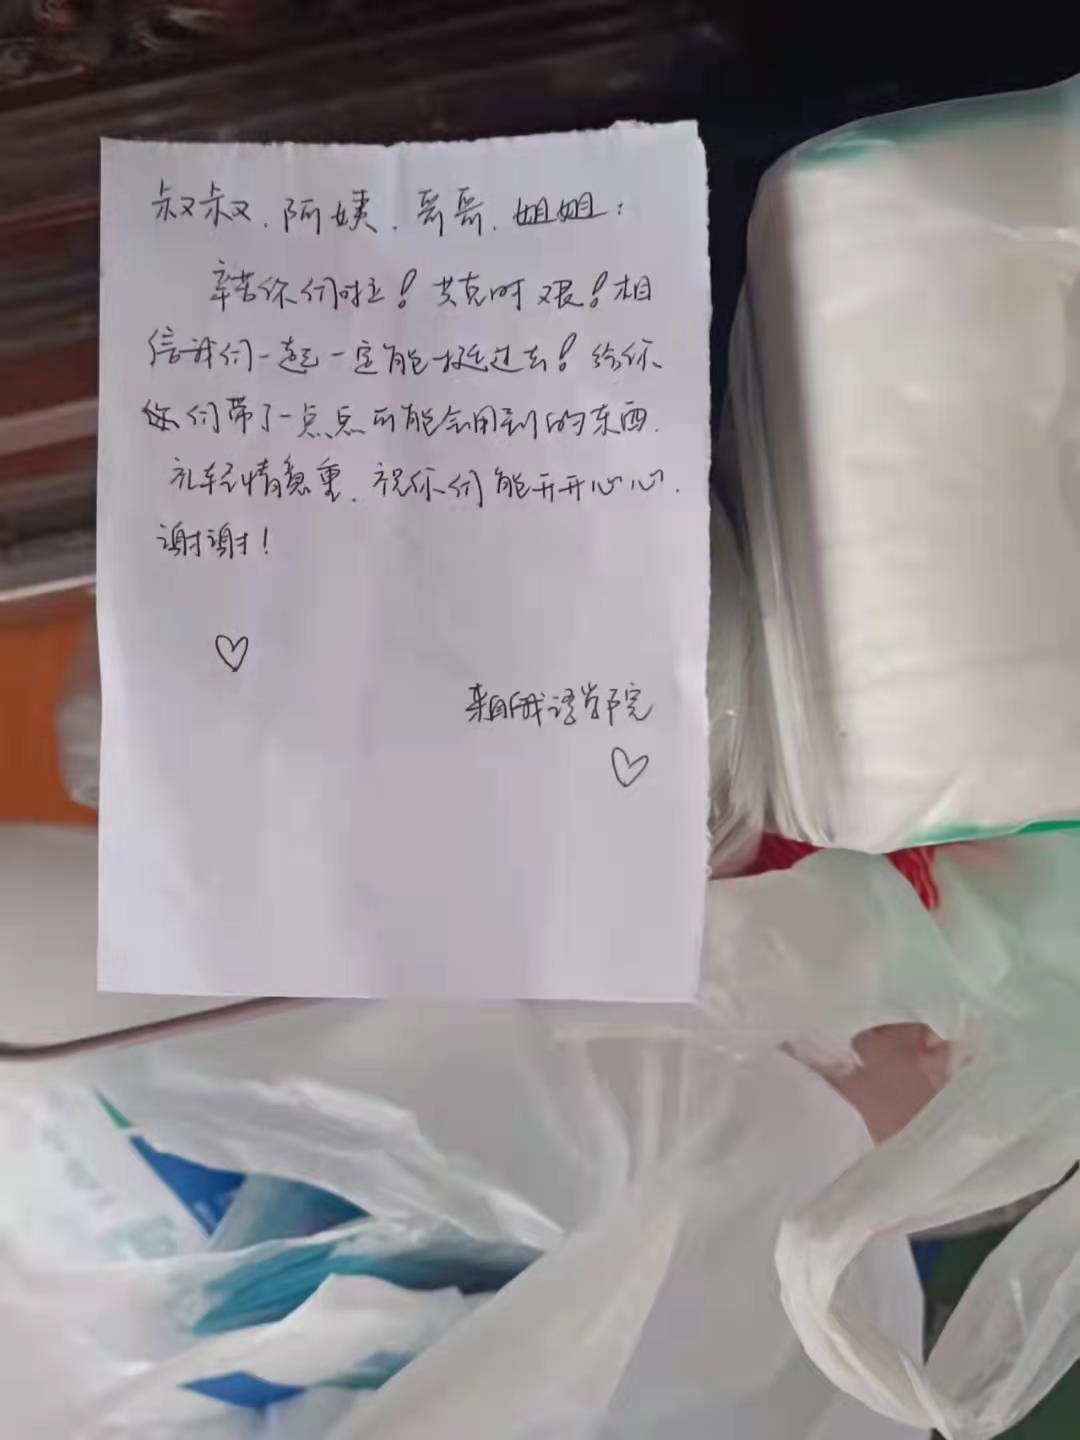 叔叔、阿姨、哥哥、姐姐：
辛苦你们啦！共克时艰！相
信我们一起一定能挺过去！给你
你们带了一点点可能会用到的东西.
礼轻情意重、祝你们能开开心心.
谢谢！
♡
来自俄语学院
♡